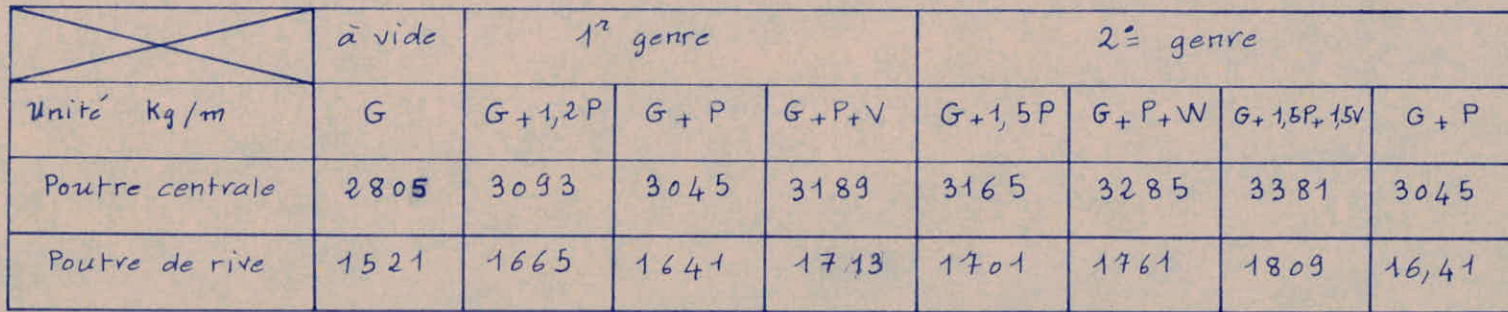 à vide 1r genre 2e genre
Unité Kg/m G G+1,2P G+P G+P+V G+1,5P G+P+W G+1,5P+1,5V G+P
Poutre centrale 2805 3093 3045 3189 3165 3285 3381 3045
Poutre de rive 1521 1665 1641 1713 1701 1761 1809 16,41